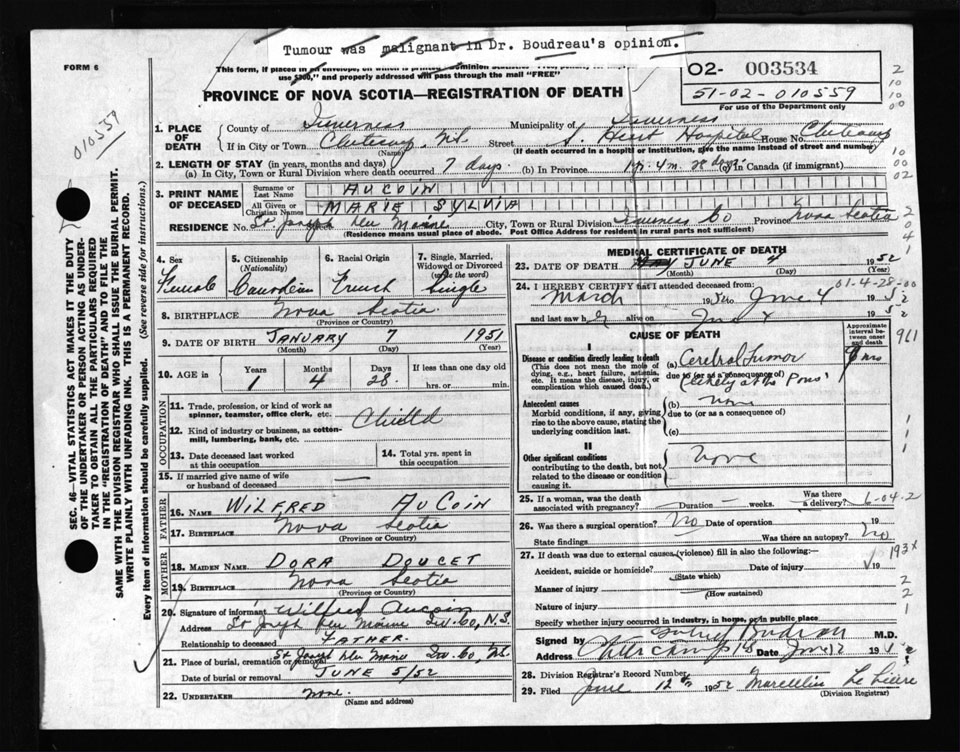 Tumour was malignant in Dr. Boudreau's opinion.
FORM 6
and properly addressed will pass through the mail "FREE"
PROVINCE OF NOVA SCOTIA—REGISTRATION OF DEATH
O2- 003534
51-02-010559
For use of the Department only
010559
1. PLACE OF DEATH
County of Inverness Municipality of Inverness
If in City or Town Cheticamp, N.S. Street Hospital House No. Cheticamp
(Name) (If death occurred in a hospital or institution, give the name instead of street and number)
2. LENGTH OF STAY (in years, months and days)
(a) In City, Town or Rural Division where death occurred 7 days (b) In Province 1 yr. 4 m. 28 days (c) In Canada (if immigrant)
3. PRINT NAME OF DECEASED
Surname or Last Name AUCOIN
All Given or Christian Names MARIE SYLVIA
RESIDENCE No. St Joseph du Moine City, Town or Rural Division Inverness Co Province Nova Scotia
(Residence means usual place of abode. Post Office Address for resident in rural parts not sufficient)
4. Sex Female
5. Citizenship (Nationality) Canadian
6. Racial Origin French
7. Single, Married, Widowed or Divorced (write the word) Single
8. BIRTHPLACE Nova Scotia
(Province or Country)
9. DATE OF BIRTH JANUARY 7 1951
(Month) (Day) (Year)
10. AGE in Years 1 Months 4 Days 28 If less than one day old hrs. or min.
OCCUPATION
11. Trade, profession, or kind of work as spinner, teamster, office clerk, etc.
Child
12. Kind of industry or business, as cotton-mill, lumbering, bank, etc.
13. Date deceased last worked at this occupation
14. Total yrs. spent in this occupation
15. If married give name of wife or husband of deceased —
FATHER
16. NAME WILFRED AUCOIN
17. BIRTHPLACE Nova Scotia
(Province or Country)
MOTHER
18. MAIDEN NAME DORA DOUCET
19. BIRTHPLACE Nova Scotia
(Province or Country)
20. Signature of informant Wilfred Aucoin
Address St Joseph du Moine Inv. Co, N.S.
Relationship to deceased FATHER.
21. Place of burial, cremation or removal St Joseph du Moine Inv. Co, N.S.
Date of burial or removal JUNE 5/52
22. UNDERTAKER None.
(Name and address)
MEDICAL CERTIFICATE OF DEATH
23. DATE OF DEATH JUNE 4 1952
(Month) (Day)
01-4-28-00
24. I HEREBY CERTIFY that I attended deceased from:
March 195 to June 4 1952
and last saw h alive on June 1952
CAUSE OF DEATH
Approximate interval between onset and death
I
Disease or condition directly leading to death
(This does not mean the mode of dying, e.g., heart failure, asthenia, etc. It means the disease, injury, or complication which caused death.)
(a) Cerebral Tumor
due to (or as a consequence of)
(likely at the Pons)
Antecedent causes
Morbid conditions, if any, giving rise to the above cause, stating the underlying condition last.
(b) None
due to (or as a consequence of)
(c)
II
Other significant conditions
contributing to the death, but not related to the disease or condition causing it.
None
25. If a woman, was the death associated with pregnancy? Duration weeks. Was there a delivery?
6-04-2
26. Was there a surgical operation? No Date of operation 19
State findings Was there an autopsy? No
27. If death was due to external causes (violence) fill in also the following:—
193X
Accident, suicide or homicide? Date of injury 19
(State which)
Manner of injury
(How sustained)
Nature of injury
Specify whether injury occurred in industry, in home, or in public place
Signed by M.D.
Address Cheticamp Date June 12 19
28. Division Registrar's Record Number
29. Filed June 12th 1952 Marcellin
(Division Registrar)
SEC. 46—VITAL STATISTICS ACT MAKES IT THE DUTY OF THE UNDERTAKER OR PERSON ACTING AS UNDERTAKER TO OBTAIN ALL THE PARTICULARS REQUIRED IN THE "REGISTRATION OF DEATH" AND TO FILE THE SAME WITH THE DIVISION REGISTRAR WHO SHALL ISSUE THE BURIAL PERMIT.
WRITE PLAINLY WITH UNFADING INK. THIS IS A PERMANENT RECORD.
Every item of information should be carefully supplied. (See reverse side for instructions.)